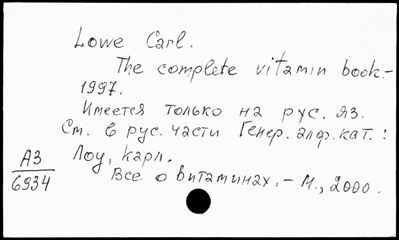 Lowe Carl.
The complete vitamin book.-
1997.
Имеется только на рус. яз.
См. в рус. части Генер. алф. кат. :
Лоу, Карл.
Все о витаминах. - М., 2000.
А3
6934